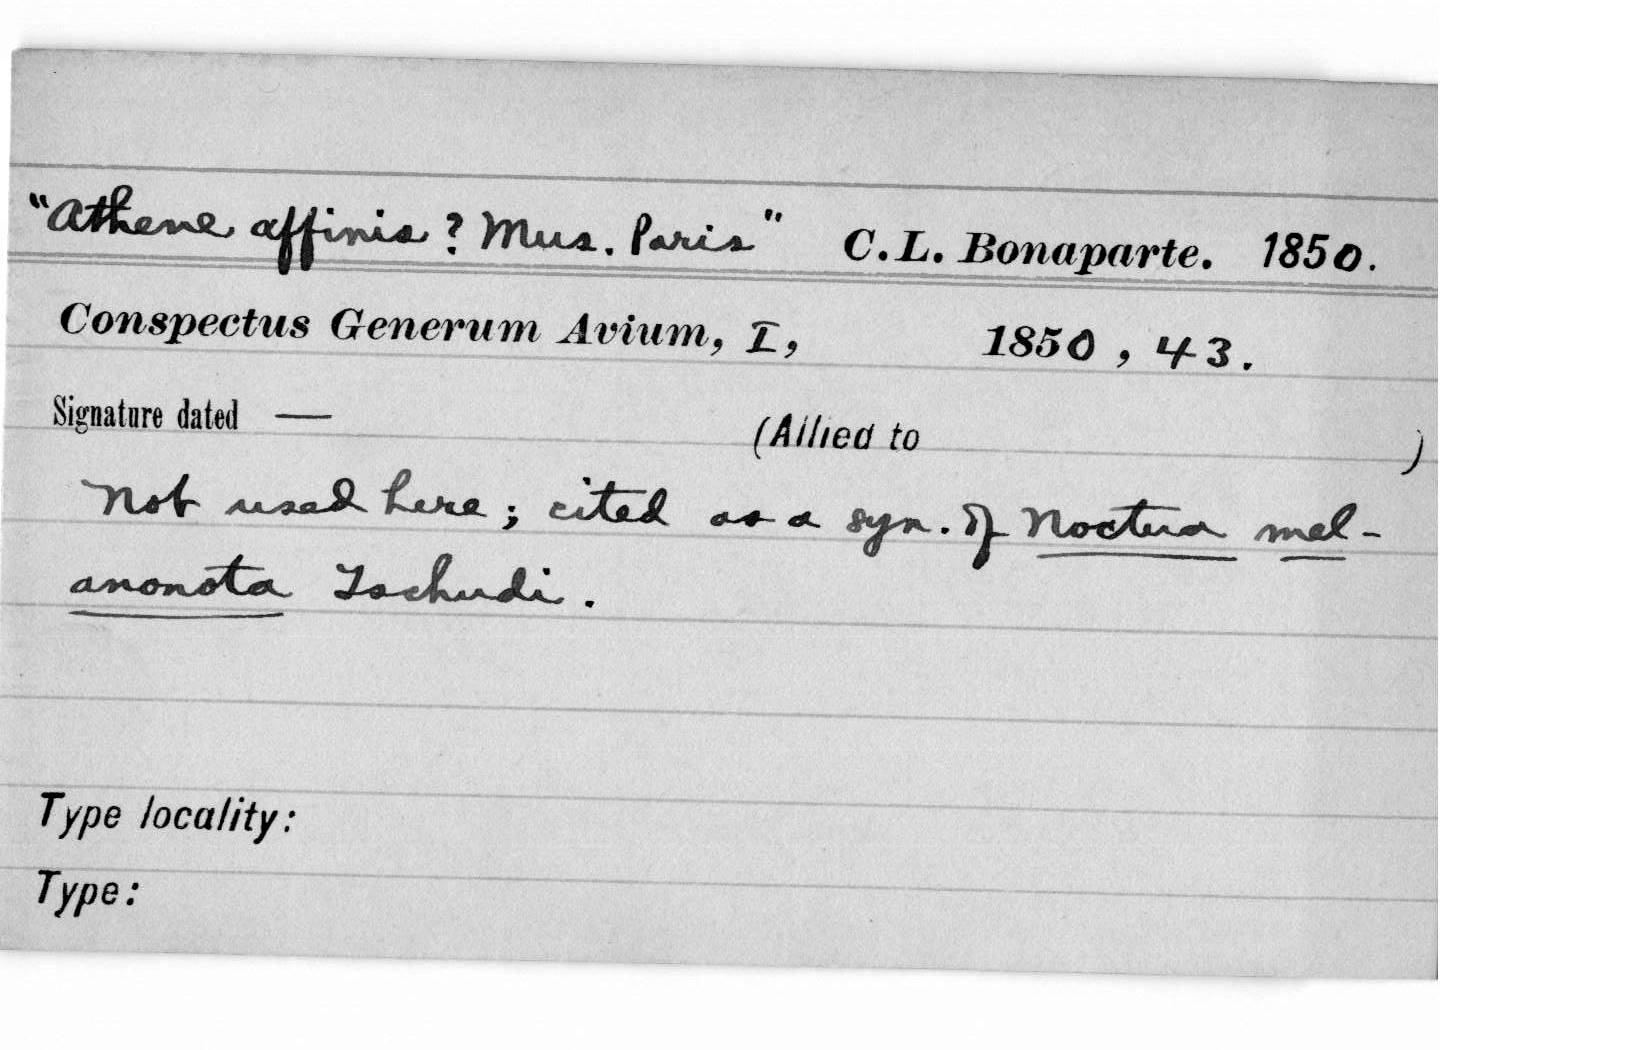 "Athene affinis? Mus. Paris" C.L. Bonaparte. 1850.
Conspectus Generum Avium, I, 1850, 43.
Signature dated — (Allied to )
Not used here; cited as a syn. of Noctua mel-
anonota Tschudi.
Type locality:
Type: